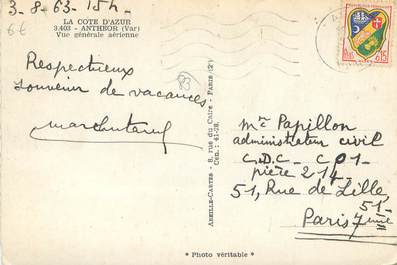 3-8-63-15h-
LA COTE D'AZUR
3.403 - ANTHÉOR (Var)
Vue générale aérienne
66
Respectueux
souvenir de vacances
83
ABEILLE-CARTES - 8, rue du Caire - PARIS (2e)
Cen. : 41-28.
0,15
Mr Papillon
administrateur civil
C.D.C- CP1-
pièce 214-
51, Rue de Lille
51-
Paris 7ème
* Photo véritable *